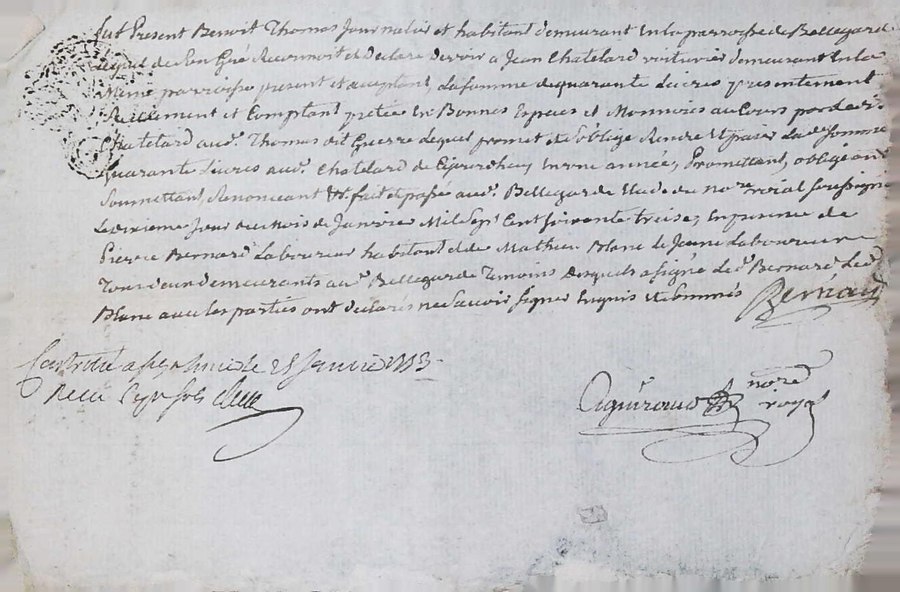 fut Present Benoit Thomas Journalier et habitant demeurant En la parroisse de Bellegarde
lequel de son Gré Reconnoit et declare devoir a Jean Chatelard voiturier demeurant En la
Meme parroisse present et acceptant, la somme de quarante Livres presentement
Reellement et Comptant pretée En Bonnes Especes et Monnoies au Cours par led.
Chatelard aud. Thomas dit Guerre Lequel promet et s'oblige Rendre Et paier Lad. somme
quarante Livres aud. Chatelard de Cejourdhuy en une année, Promettant, obligeant
Soumettant, Renonceant &c. fait et passé aud. Bellegarde Etude du nore. roial soussigné
Le dixieme Jour du Mois de Janvier Mil Sept Cent soixante treise, En presence de
Pierre Bernard Laboureur habitant de Mathieu Blanc le Jeune Laboureur
demeurants aud. Bellegarde Temoins Desquels a signé Led. Bernard, Led.
Blanc avec les parties ont declarés ne savoir signer Enquis et sommés Bernard
Controllé a le 25 Janvier 1773
Recu sept sols
nore.
royal